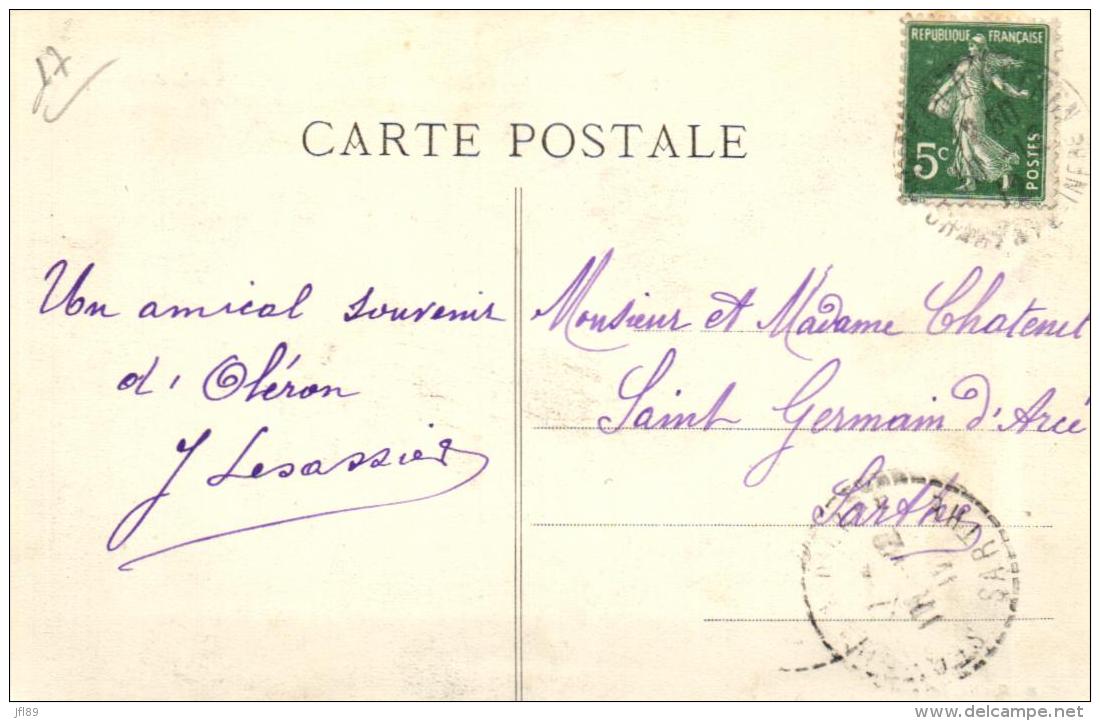 17
CARTE POSTALE
REPUBLIQUE FRANÇAISE
5c
POSTES
CHARENTE INFRE
Un amical souvenir
d'Oléron
J Lesassier
Monsieur et Madame Chatenet
Saint Germain d'Arcé
Sarthe
SARTHE
jfl89
www.delcampe.net